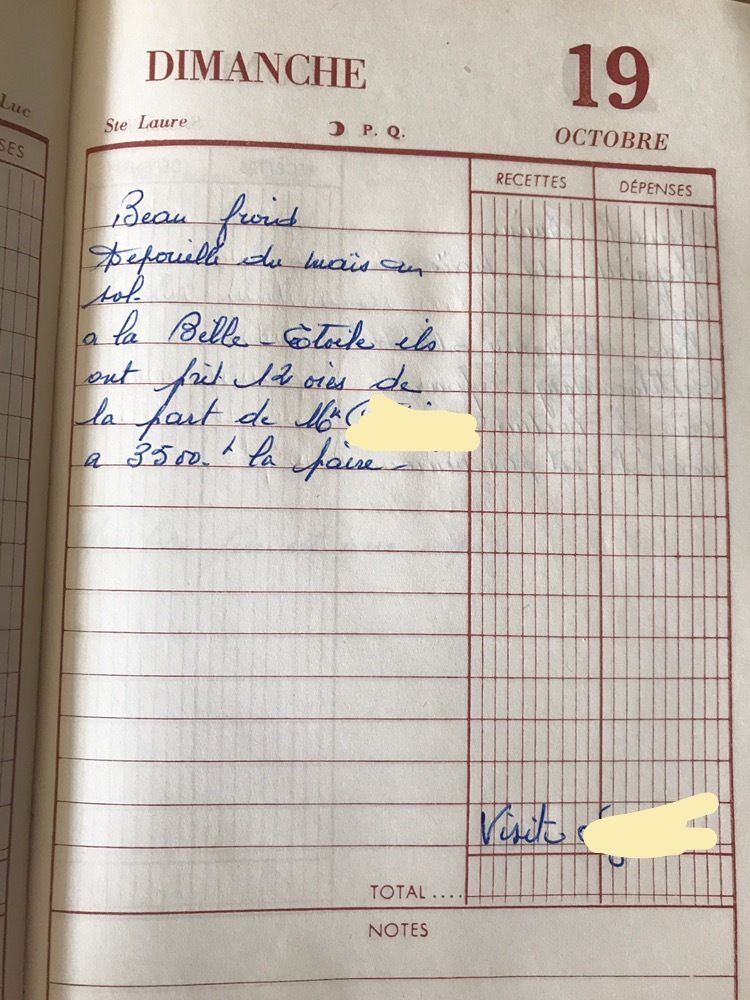 Luc
SES
DIMANCHE
19
Ste Laure
P. Q.
OCTOBRE
RECETTES
DÉPENSES
Beau froid
Depouille du maïs au
sol.
a la Belle-Etoile ils
ont prit 12 oies de
la part de Mr
a 3500. f la paire -
Visite
TOTAL ....
NOTES